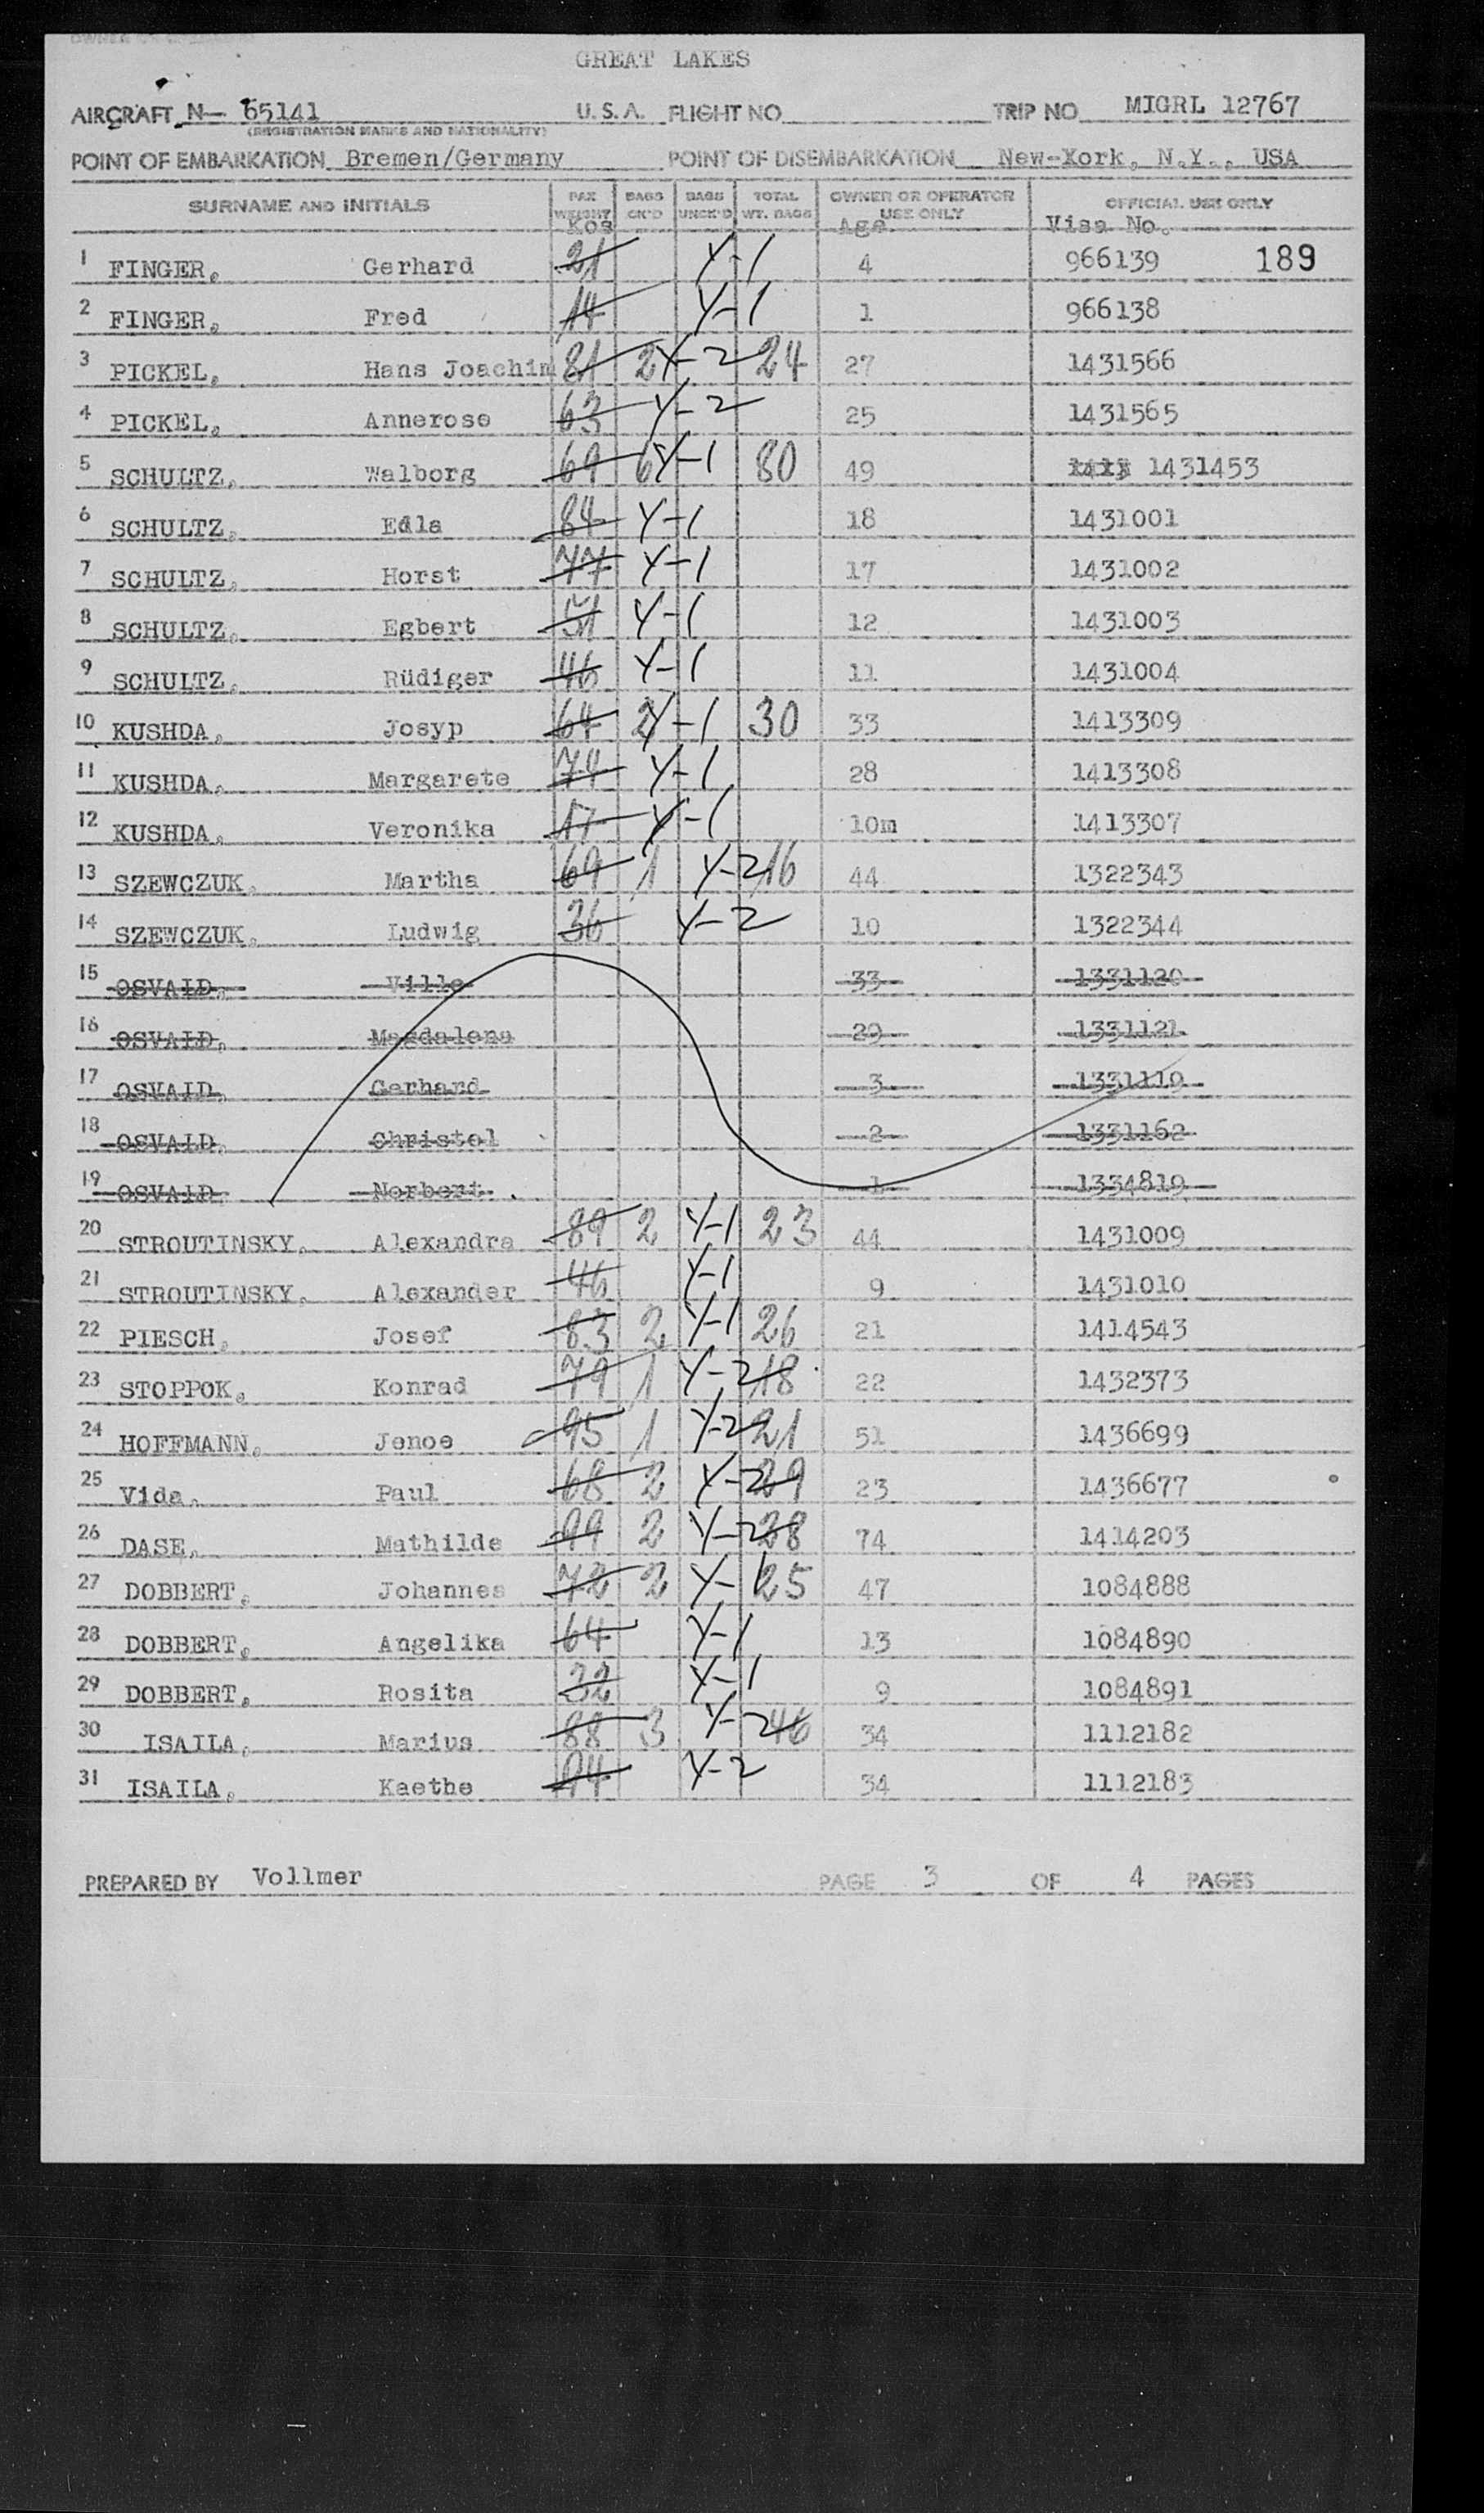 GREAT LAKES
AIRCRAFT N- 65141 U.S.A. FLIGHT NO TRIP NO MIGRL 12767
(REGISTRATION MARKS AND NATIONALITY)
POINT OF EMBARKATION Bremen/Germany POINT OF DISEMBARKATION New-York, N.Y., USA
SURNAME AND INITIALS PAX WEIGHT BAGS CK'D BAGS UNCK'D TOTAL WT. BAGS OWNER OR OPERATOR USE ONLY OFFICIAL USE ONLY
Kos Age Visa No.
1 FINGER, Gerhard 21 Y-1 4 966139 189
2 FINGER, Fred 14 Y-1 1 966138
3 PICKEL, Hans Joachim 81 2 Y-2 24 27 1431566
4 PICKEL, Annerose 63 Y-2 25 1431565
5 SCHULTZ, Walborg 69 6 Y-1 80 49 1431453
6 SCHULTZ, Edla 84 Y-1 18 1431001
7 SCHULTZ, Horst 77 Y-1 17 1431002
8 SCHULTZ, Egbert 51 Y-1 12 1431003
9 SCHULTZ, Rüdiger 46 Y-1 11 1431004
10 KUSHDA, Josyp 64 2 Y-1 30 33 1413309
11 KUSHDA, Margarete 74 Y-1 28 1413308
12 KUSHDA, Veronika 17 Y-1 10m 1413307
13 SZEWCZUK, Martha 69 1 Y-2 16 44 1322343
14 SZEWCZUK, Ludwig 36 Y-2 10 1322344
15 OSVALD, Ville 33 1331120
16 OSVALD, Magdalena 29 1331121
17 OSVALD, Gerhard 3 1331119
18 OSVALD, Christel 2 1331162
19 OSVALD, Norbert 1 1334819
20 STROUTINSKY, Alexandra 89 2 Y-1 23 44 1431009
21 STROUTINSKY, Alexander 46 Y-1 9 1431010
22 PIESCH, Josef 83 2 Y-1 26 21 1414543
23 STOPPOK, Konrad 79 1 Y-2 18 22 1432373
24 HOFFMANN, Jenoe 95 1 Y-2 21 51 1436699
25 Vida, Paul 68 2 Y-2 29 23 1436677
26 DASE, Mathilde 99 2 Y-2 38 74 1414203
27 DOBBERT, Johannes 72 2 Y-1 25 47 1084888
28 DOBBERT, Angelika 64 Y-1 13 1084890
29 DOBBERT, Rosita 32 Y-1 9 1084891
30 ISAILA, Marius 88 3 Y-2 46 34 1112182
31 ISAILA, Kaethe 94 Y-2 34 1112183
PREPARED BY Vollmer PAGE 3 OF 4 PAGES